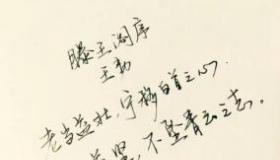 滕王阁序
王勃
老当益壮,宁移白首之心,
益坚,不坠青云之志。